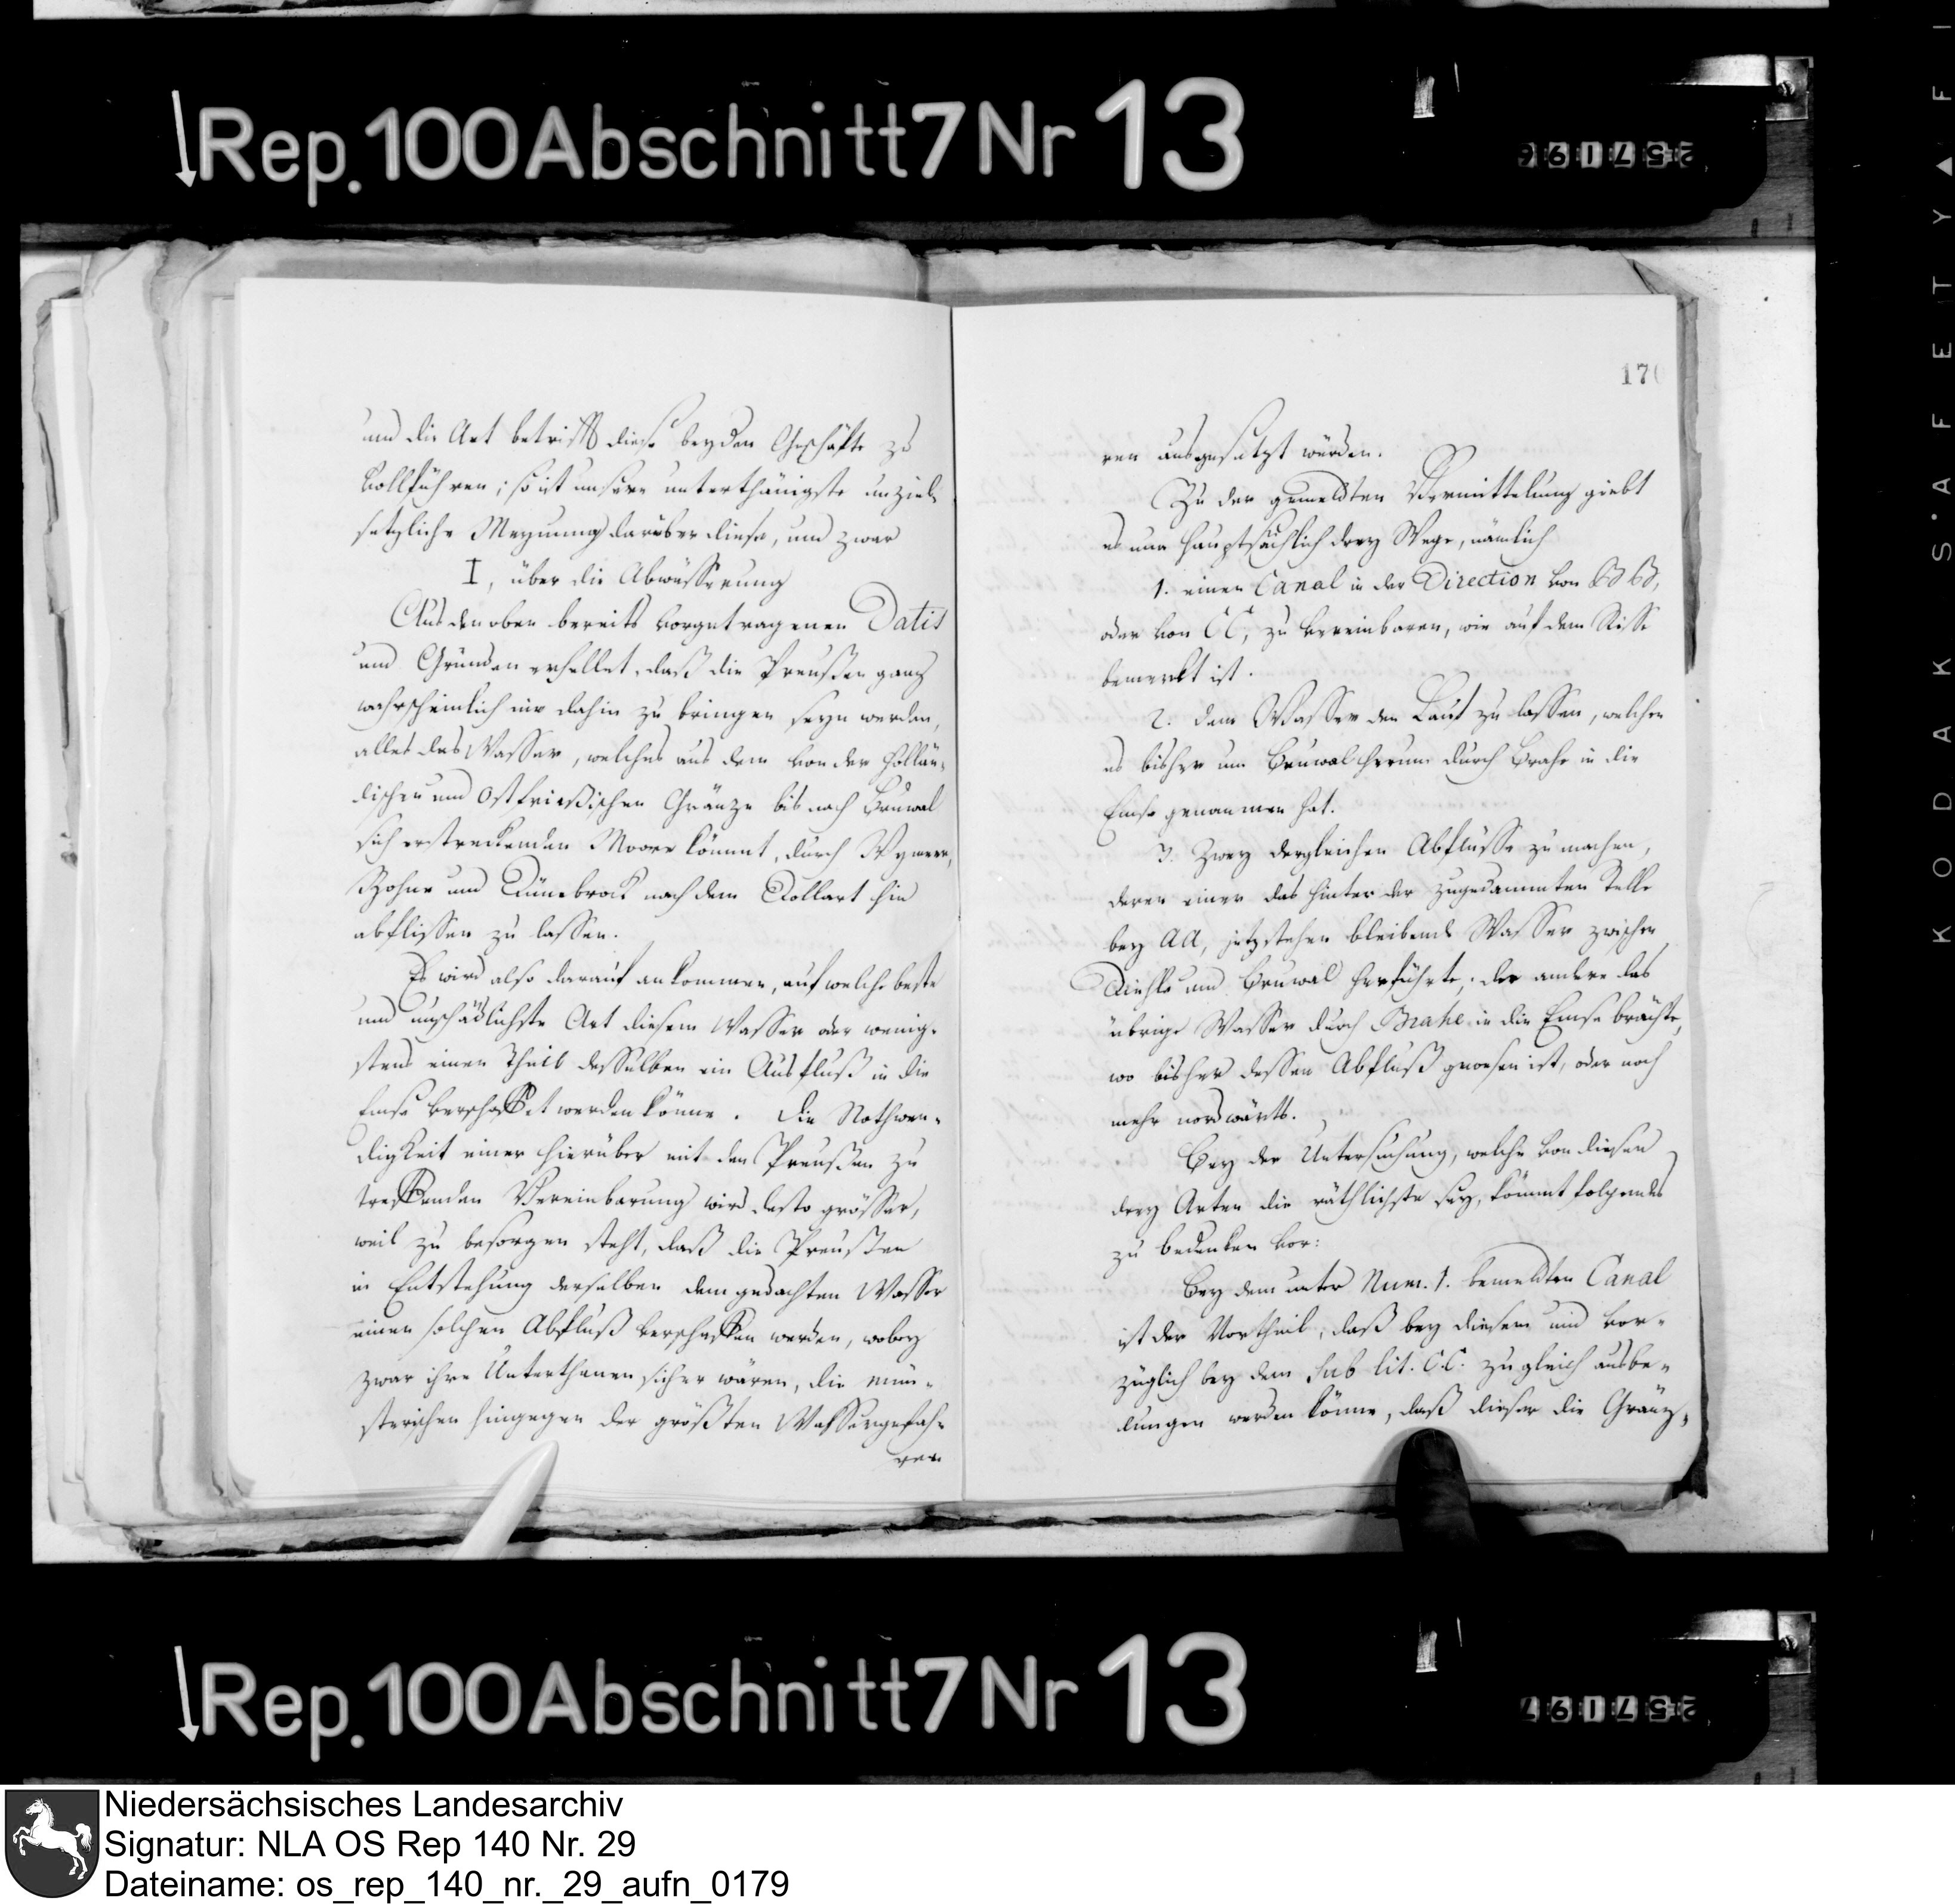 Rep. 100 Abschnitt 7 Nr 13
257196
und die Art betrifft diese beyden Geschäfte zu
vollführen; so ist unsere unterthänigste
setzliche Meynung darüber diese, und zwar
I, über die Abwässerung
Aus den oben bereits vorgetragenen Datis
und Gründen erhellet, daß die Preußen ganz
wahrscheinlich nie dahin zu bringen seyn werden,
alles das Wasser, welches aus dem von der Hollän-
dischen und Ostfriesischen Gränze bis nach Bruwal
sich erstreckenden Moore kömmt, durch Wymeer,
Bohne und Dünebrock nach dem Dollart hin
abfliessen zu lassen.
Es wird also darauf ankommen, auf welche beste
und unschädlichste Art diesem Wasser oder wenig-
stens einem Theil desselben ein Ausfluß in die
Emse verschaffet werden könne. Die Nothwen-
digkeit einer hierüber mit den Preußen zu
treffenden Vereinbarung wird desto grösser,
weil zu besorgen steht, daß die Preußen
in Entstehung derselben dem gedachten Wasser
einen solchen Abfluß verschaffen werden, wobey
zwar ihre Unterthanen sicher wären, die mün-
sterischen hingegen der größten Wassergefah-
ren
17
ren ausgesetzt würden.
Zu der gemeldten Vermittelung giebt
es nun hauptsächlich drey Wege, nämlich
1. einen Canal in der Direction von BB,
oder von CC, zu vereinbaren, wie auf dem Risse
bemerkt ist.
2. dem Wasser den Lauf zu lassen, welchen
es bisher um Bruwal herum durch Brahe in die
Emse genommen hat.
3. Zwey dergleichen Abflüsse zu machen,
deren einer das hinter der zugedammten Stelle
bey AA, jetz stehen bleibende Wasser zwischen
Diehle und Bruwal herführte, der andere das
übrige Wasser durch Brahe in die Emse brächte,
wo bisher dessen Abfluß gewesen ist, oder noch
mehr nordwärts.
Bey der Untersuchung, welche von diesen
drey Arten die räthlichste sey, kömmt folgendes
zu bedenken vor:
Bey dem unter Num. 1. bemeldten Canal
ist der Vortheil, daß bey diesem und vor-
züglich bey dem sub lit. C.C. zugleich ausbe-
dungen werden könne, daß dieser die Gränz-
Rep. 100 Abschnitt 7 Nr 13
257197
KODAK S.A F E T Y ▲ F I
Niedersächsisches Landesarchiv
Signatur: NLA OS Rep 140 Nr. 29
Dateiname: os_rep_140_nr._29_aufn_0179